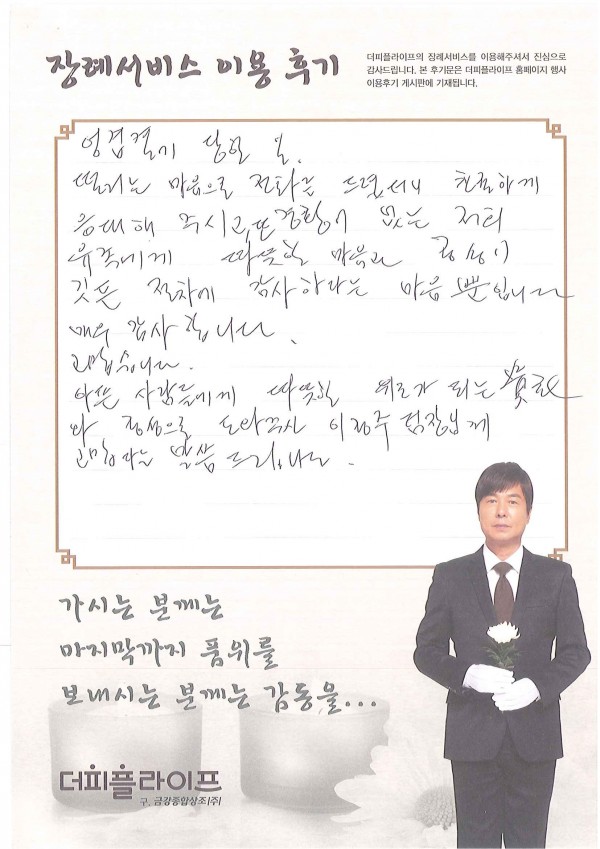 장례서비스 이용 후기
더피플라이프의 장례서비스를 이용해주셔서 진심으로
감사드립니다. 본 후기문은 더피플라이프 홈페이지 행사
이용후기 게시판에 기재됩니다.
엉겁결에 당한 일.
떨리는 마음으로 전화를 드렸더니 친절하게
응대해 주시고, 또 경황이 없는 저희
유족에게 따뜻한 마음과 정성이
깃든 절차에 감사하다는 마음 뿐입니다
매우 감사 합니다.
고맙습니다.
아픈 사람들에게 따뜻한 위로가 되는
와 정성으로 도와주신 이정주 팀장님께
고맙다는 말씀 드립니다.
가시는 분께는
마지막까지 품위를
보내시는 분께는 감동을...
더피플라이프
구. 금강종합상조(주)